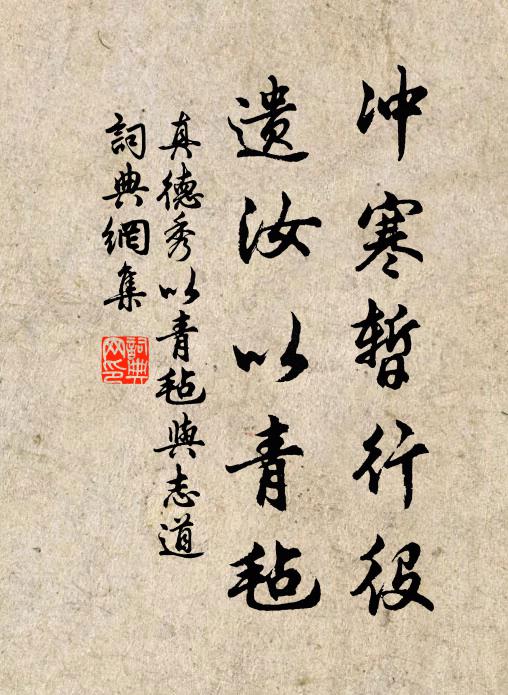 冲寒暂行役
遗汝以青毡
真德秀以青毡與志道
詞典網集
詞典网印